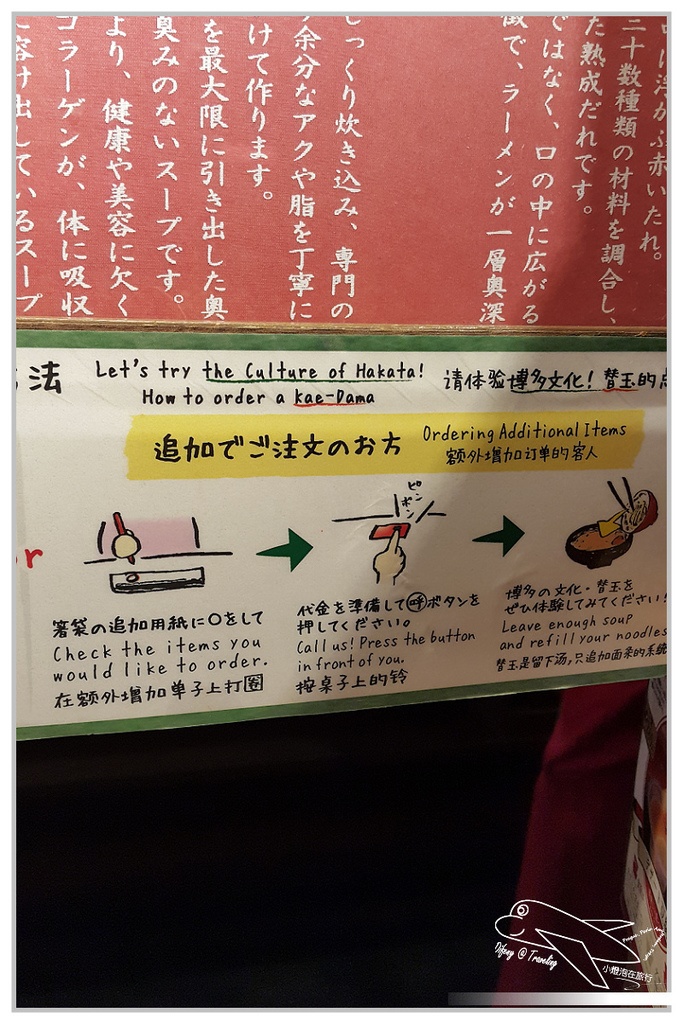 に浮かぶ赤いたれ。
三十数種類の材料を調合し、
た熟成だれです。
ではなく、口の中に広がる
徴で、ラーメンが一層奥深
じっくり炊き込み、専門の
余分なアクや脂を丁寧に
けて作ります。
を最大限に引き出した奥
臭みのないスープです。
より、健康や美容に欠く
コラーゲンが、体に吸収
溶け出しているスープ
法
Let's try the Culture of Hakata!
How to order a kae-Dama
请体验博多文化！替玉的点
追加でご注文のお方
Ordering Additional Items
额外增加订单的客人
r
箸袋の追加用紙に○をして
Check the items you
would like to order.
在额外增加单子上打圈
ピンポン
代金を準備して呼ボタンを
押してください。
Call us! Press the button
in front of you.
按桌子上的铃
博多の文化・替玉を
ぜひ体験してみてください！
Leave enough soup
and refill your noodles
替玉是留下汤,只追加面来的系统
Difeny @ Traveling
小燈泡在旅行